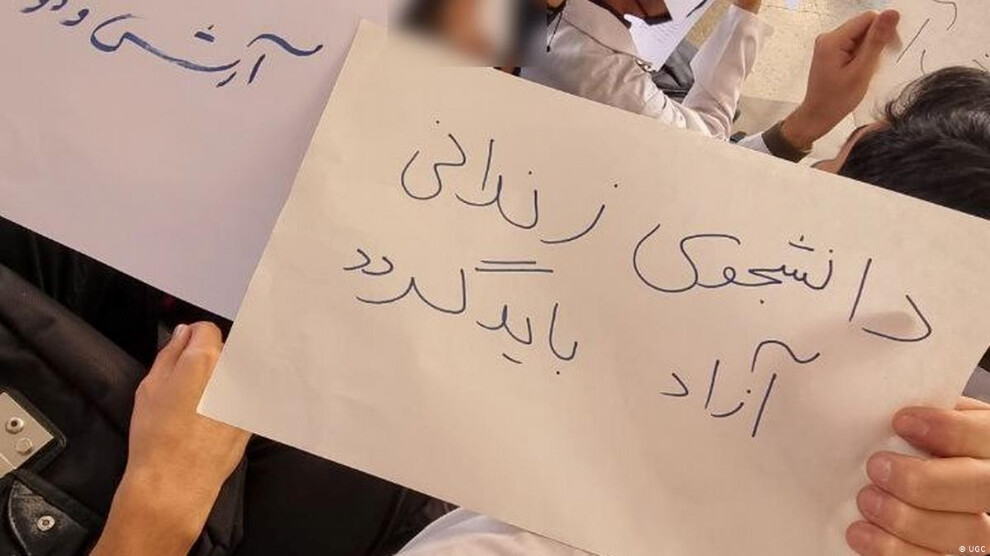 دانشجوی زندانی
آزاد باید گردد
آرش
© UGC